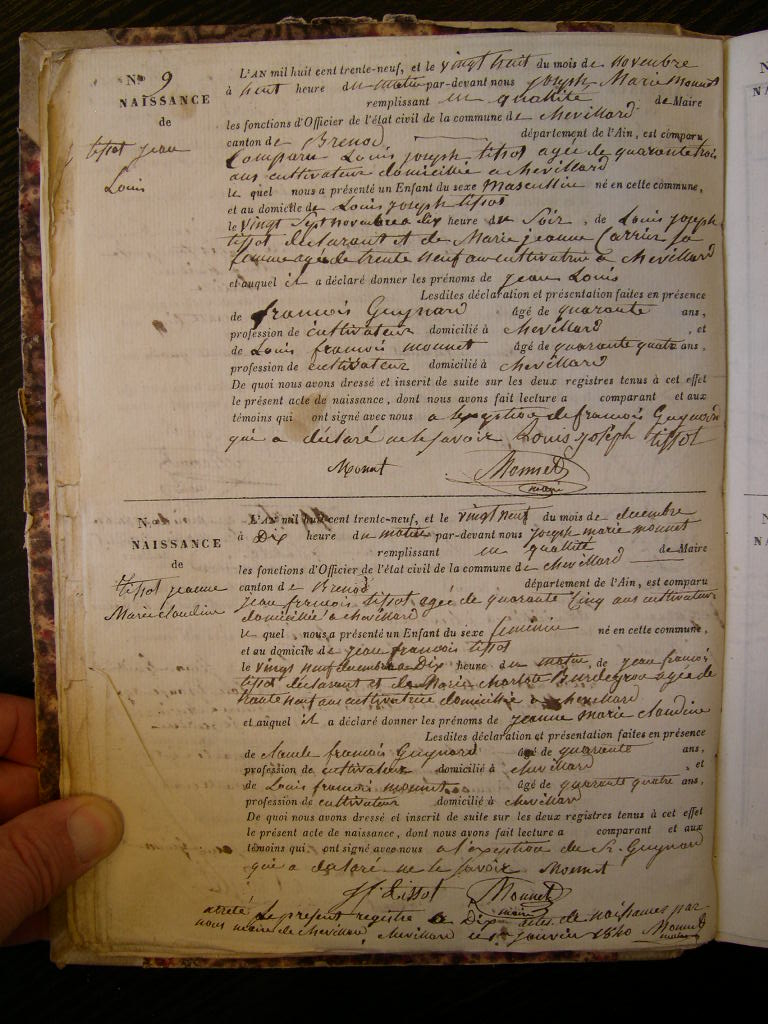 No 9
NAISSANCE
de
tissot jean
Louis
L'AN mil huit cent trente-neuf, et le vingt huit du mois de novembre
à huit heure du matin par-devant nous joseph Marie Monnet
remplissant en quallité de Maire
les fonctions d'Officier de l'état civil de la commune de chevillard
canton de Brenod département de l'Ain, est comparu
Comparu Louis joseph tissot agée de quarante trois
ans cultivateur domicilié a chevillard
le quel nous a présenté un Enfant du sexe Masculin né en cette commune,
et au domicile de Louis joseph tissot
le vingt sept novembre a dix heure du Soir, de Louis joseph
tissot déclarant et de Marie jeanne Carrier sa
femme agée de trente neuf ans cultivatrice a chevillard
et auquel il a déclaré donner les prénoms de jean Louis
Lesdites déclaration et présentation faites en présence
de francois Guynard âgé de quarante ans,
profession de cultivateur domicilié à chevillard , et
de Louis francois monnet âgé de quarante quatre ans,
profession de cultivateur domicilié à chevillard
De quoi nous avons dressé et inscrit de suite sur les deux registres tenus à cet effet
le présent acte de naissance, dont nous avons fait lecture a comparant et aux
témoins qui ont signé avec nous a de francois Guynard
qui a déclaré ne le savoir Louis joseph tissot
Monnet Monnet
maire
No
NAISSANCE
de
tissot jeanne
Marie claudine
L'AN mil huit cent trente-neuf, et le vingt neuf du mois de decembre
à Dix heure du matin par-devant nous joseph marie monnet
remplissant en quallité de Maire
les fonctions d'Officier de l'état civil de la commune de chevillard
canton de Brenod département de l'Ain, est comparu
jean francois tissot agée de quarante Cinq ans cultivateur
domicilié a chevillard
le quel nous a présenté un Enfant du sexe feminin né en cette commune,
et au domicile de jean francois tissot
le vingt neuf decembre a Dix heure du matin, de jean francois
tissot déclarant et de Marie charlotte agée de
trente neuf ans cultivatrice domiciliée a chevillard
et auquel il a déclaré donner les prénoms de jeanne marie claudine
Lesdites déclaration et présentation faites en présence
de claude francois Guynard âgé de quarante ans,
profession de cultivateur domicilié à chevillard , et
de Louis francois monnet âgé de quarante quatre ans,
profession de cultivateur domicilié à chevillard
De quoi nous avons dressé et inscrit de suite sur les deux registres tenus à cet effet
le présent acte de naissance, dont nous avons fait lecture a comparant et aux
témoins qui ont signé avec nous a l'exception de Guynard
qui a déclaré ne le savoir Monnet
tissot Monnet
maire
arreté le present registre a Dix actes de naissances par
nous maire de chevillard, chevillard le 1er janvier 1840 Monnet
maire